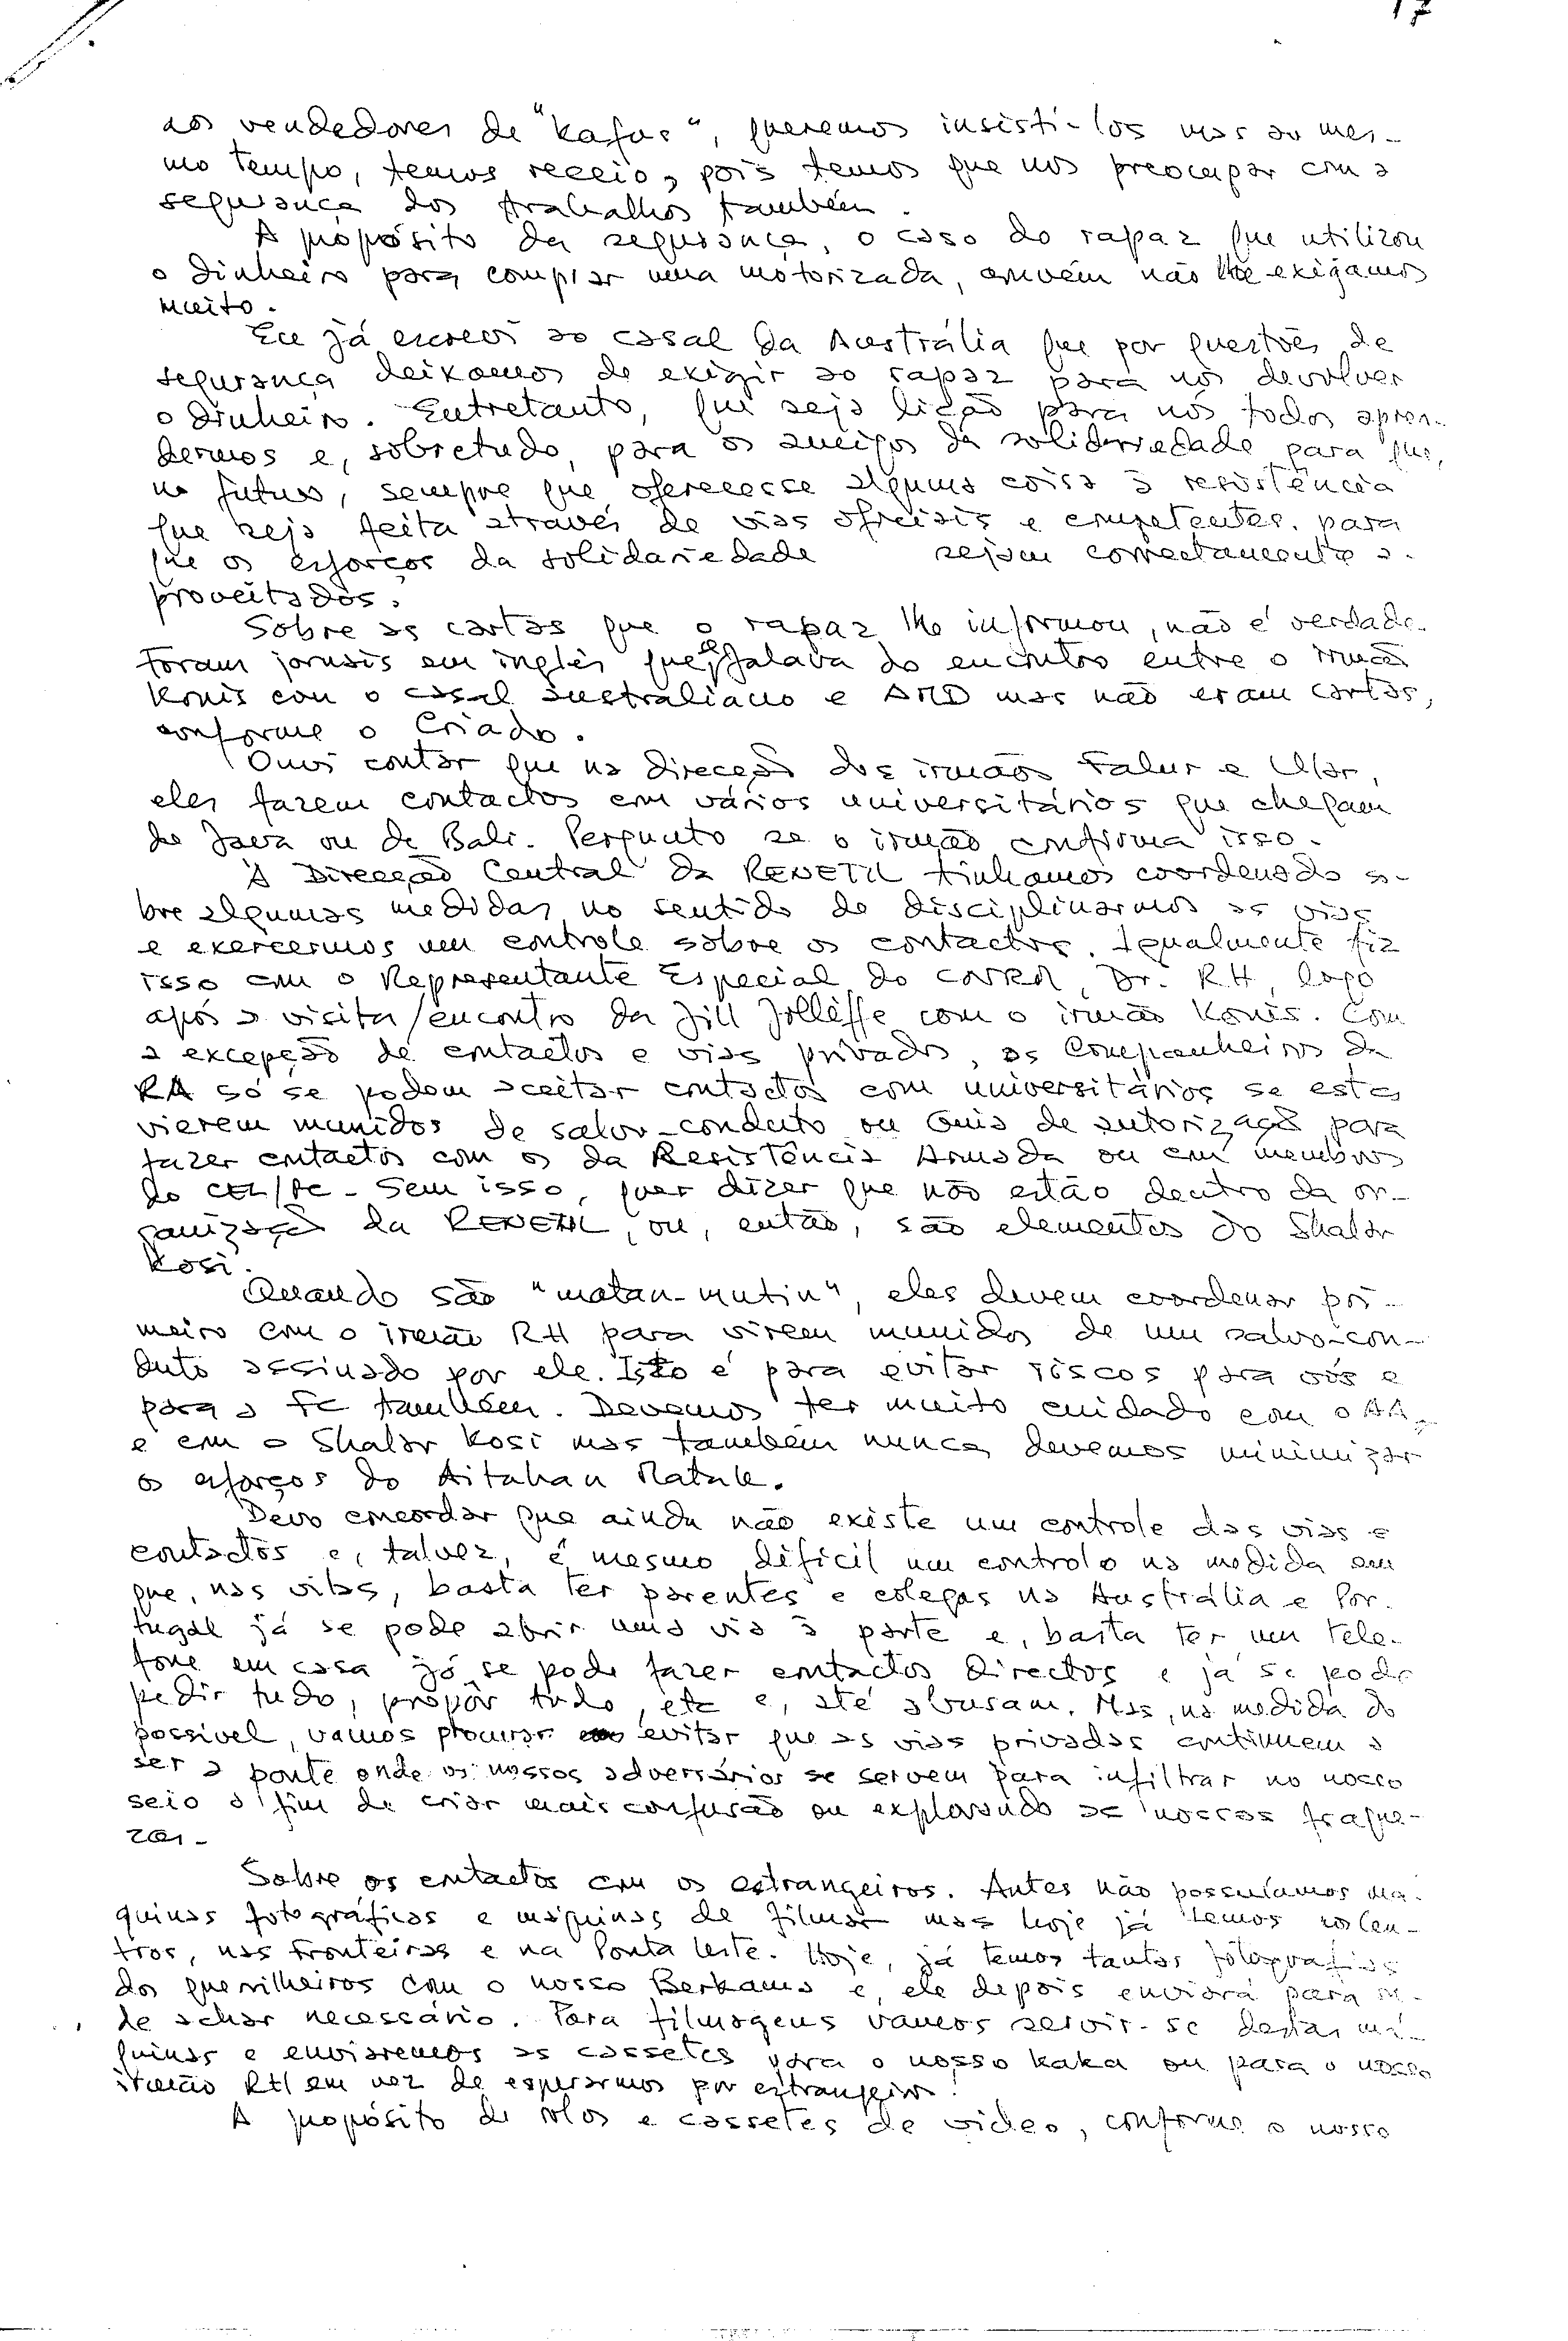 17
aos vendedores de "kafus", queremos insisti-los mas ao mes-
mo tempo, temos receio, pois temos que nos preocupar com a
segurança dos trabalhos também.
A propósito da segurança, o caso do rapaz que utilizou
o dinheiro para comprar uma motorizada, convém não lhe exigamos
muito.
Eu já escrevi ao casal da Austrália que por questões de
segurança deixamos de exigir ao rapaz para nos devolver
o dinheiro. Entretanto, que seja lição para nós todos apren-
dermos e, sobretudo, para os amigos da solidariedade para que,
no futuro, sempre que oferecesse alguma coisa à resistência
que seja feita através de vias oficiais e competentes, para
que os esforços da solidariedade sejam correctamente a-
proveitados.
Sobre as cartas que o rapaz lhe informou, não é verdade.
Foram jornais em inglês que se falava do encontro entre o irmão
Konis com o casal australiano e AMD mas não eram cartas,
conforme o Criado.
Ouvi contar que na direcção dos irmãos Falur e Ular,
eles fazem contactos com vários universitários que chegam
de Java ou de Bali. Pergunto se o irmão confirma isso.
À Direcção Central da RENETIL tinhamos coordenado so-
bre algumas medidas no sentido de disciplinarmos as vias
e exercermos um controle sobre os contactos. Igualmente fiz
isso com o Representante Especial do CNRM, Dr. RH, logo
após a visita/encontro da Jill Jolliffe com o irmão Konis. Com
a excepção de contactos e vias privados, os Companheiros da
RA só se podem aceitar contactos com universitários se estes
vierem munidos de salvo-conduto ou Guia de autorização para
fazer contactos com os da Resistência Armada ou com membros
do CEL/FC - Sem isso, quer dizer que não estão dentro da or-
ganização da RENETIL, ou, então, são elementos do Shalar
Kosi.
Quando são "matan-mutin", eles devem coordenar pri-
meiro com o irmão RH para virem munidos de um salvo-con-
duto assinado por ele. Isto é para evitar riscos para vós e
para a FC também. Devemos ter muito cuidado com o AA.
e com o Shalar Kosi mas também nunca devemos minimizar
os esforços do Aitahan Matak.
Devo concordar que ainda não existe um controle das vias e
contactos e, talvez, é mesmo dificil um controlo na medida em
que, nas vilas, basta ter parentes e colegas na Austrália e Por-
tugal já se pode abrir uma via à parte e, basta ter um tele-
fone em casa já se pode fazer contactos directos e já se pode
pedir tudo, propôr tudo, etc e, até abusam. Mas, na medida do
possivel, vamos procurar evitar que as vias privadas continuem a
ser a ponte onde os nossos adversários se servem para infiltrar no nosso
seio a fim de criar mais confusão ou explorando as nossas fraque-
zas.
Sobre os contactos com os estrangeiros. Antes não possuíamos má-
quinas fotográficas e máquinas de filmar mas hoje já temos no Cen-
tros, nas fronteiras e na Ponta Leste. Hoje, já temos tantas fotografias
dos guerrilheiros com o nosso e, ele depois enviará para on-
de achar necessário. Para filmagens vamos servir-se destas má-
quinas e enviaremos as cassetes para o nosso kaka ou para o nosso
irmão RH em vez de esperarmos por estrangeiros.
A propósito de rolos e cassetes de video, conforme o nosso